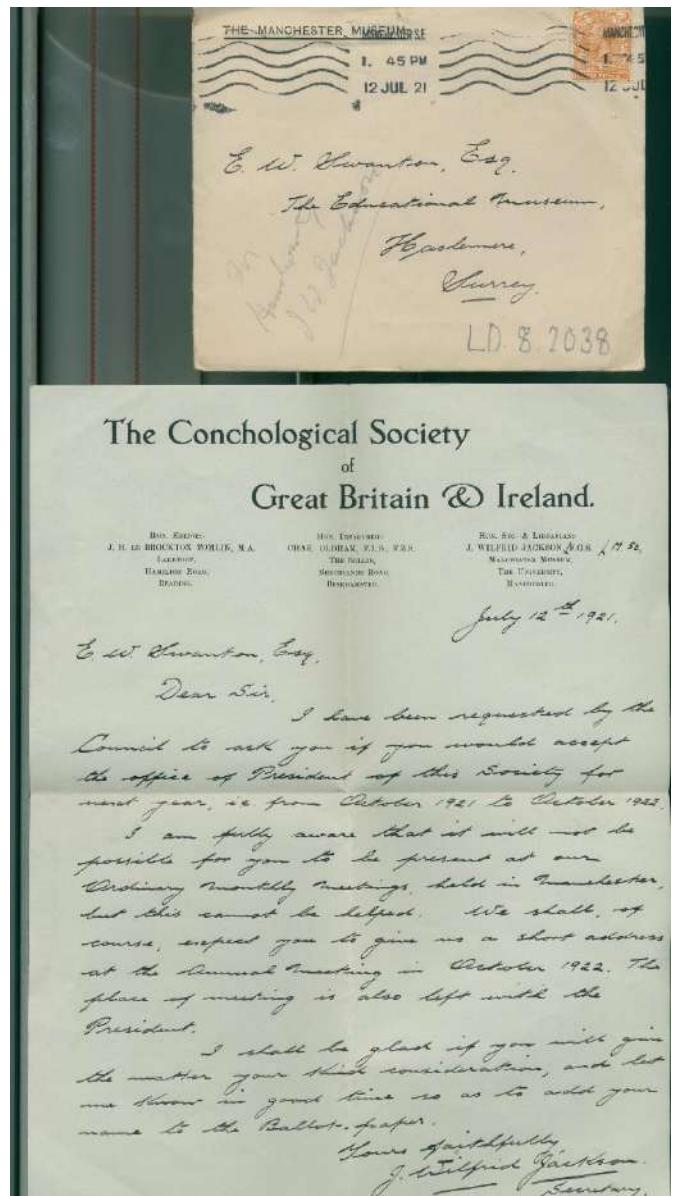 THE MANCHESTER MUSEUM
1. 45 PM
12 JUL 21
MANCHEST
1. 45
12 JUL
E. W. Swanton, Esq.
The Educational Museum,
Haslemere,
Surrey.
J W Jackson
LD. 8. 2038
The Conchological Society
of
Great Britain & Ireland.
HON. EDITOR:
J. R. LE BROCKTON TOMLIN, M.A.
HAMILTON ROAD,
READING.
HON. TREASURER:
CHAS. OLDHAM, F.L.S., F.Z.S.
THE BOLLIN,
SHRUBLANDS ROAD,
BERKHAMSTED.
HON. SEC. & LIBRARIAN:
J. WILFRID JACKSON, F.G.S. M.Sc,
MANCHESTER MUSEUM,
THE UNIVERSITY,
MANCHESTER.
July 12th 1921.
E. W. Swanton, Esq.
Dear Sir,
I have been requested by the
Council to ask you if you would accept
the office of President of this Society for
next year, ie from October 1921 to October 1922.
I am fully aware that it will not be
possible for you to be present at our
Ordinary monthly meetings, held in Manchester,
but this cannot be helped. We shall, of
course, expect you to give us a short address
at the Annual Meeting in October 1922. The
place of meeting is also left with the
President.
I shall be glad if you will give
the matter your kind consideration, and let
me know in good time so as to add your
name to the Ballot-paper.
Yours faithfully
J. Wilfrid Jackson.
Secretary.